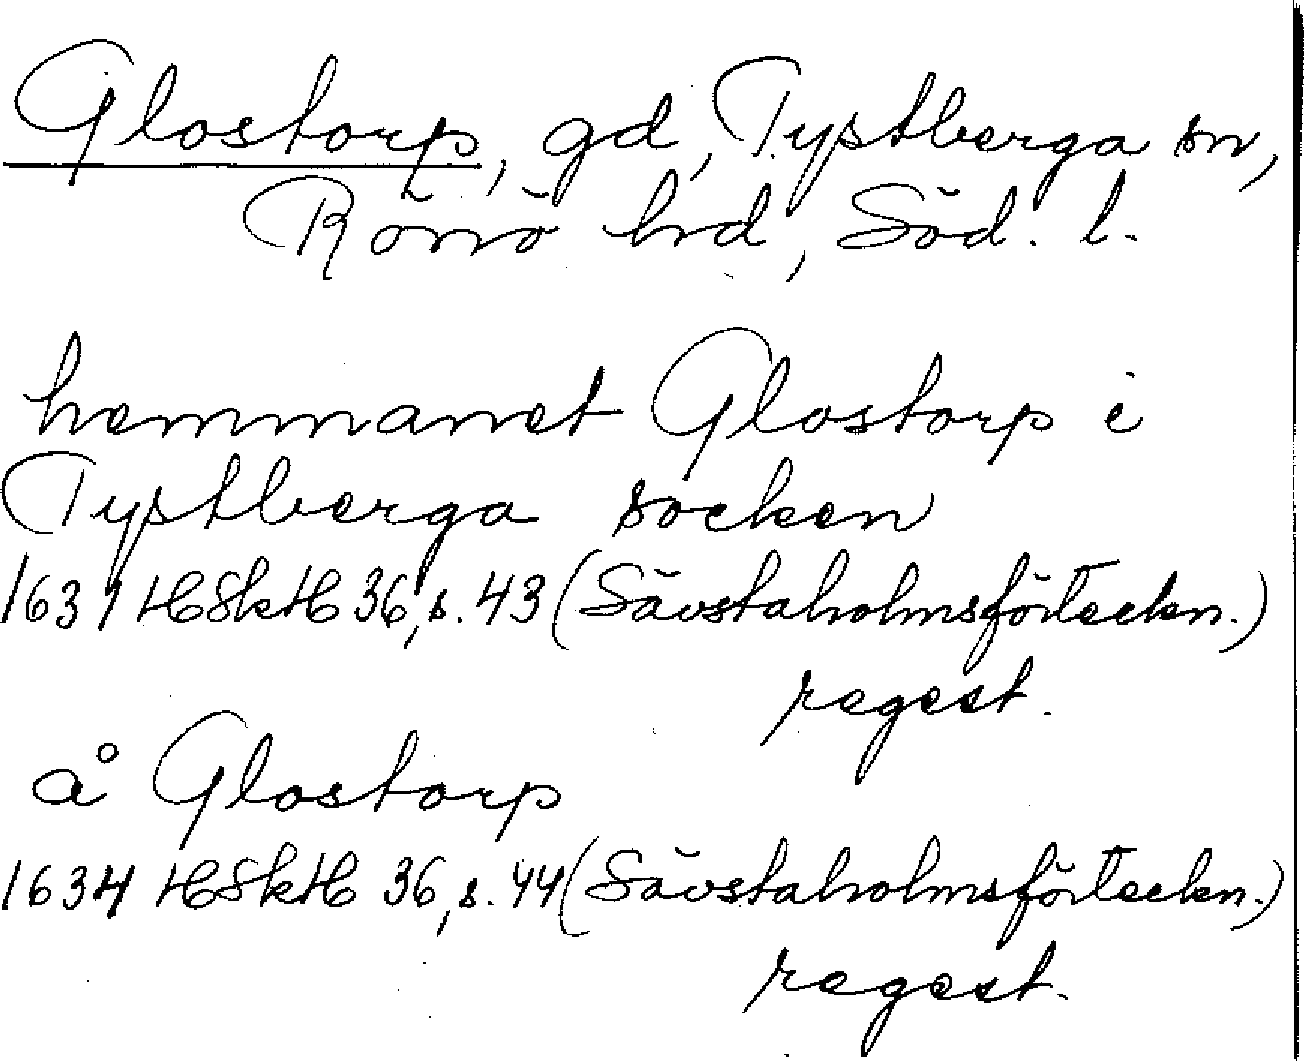 Glostorp, gd, Tystberga sn,
Rönö hd, Söd. l.
hemmanet Glostorp i
Tystberga socken
1631 HSkH 36, s. 43 (Sävstaholmsförteckn.)
regest.
å Glostorp
1634 HSkH 36, s. 44 (Sävstaholmsförteckn.)
regest.